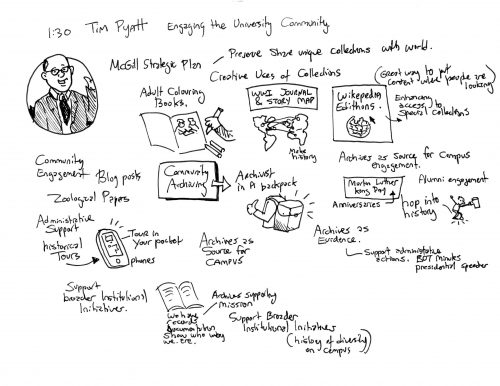 1:30 Tim Pyatt Engaging the University Community
McGill Strategic Plan
Preserve Share unique collections with world.
Creative Uses of Collections
Adult Colouring
Books.
WWI Journal
& Story Map
Make
history
Wikepedia
Edithons.
(Great way to put
content where people are
looking)
Enhancing
access to
Special Collections
Community
Engagement
Blog posts
Zoological Papers
Community
Archiving
Archivist
in A backpack
Archives as Source for Campus
engagement.
Martin Luther
King Day
Anniversaries
Alumni engagement
hop into
history
Administrative
Support
historical
Tours
Tour in
Your pocket
phones
Archives as
Source for
Campus
Archives as
Evidence.
Support administrative
actions. BOT minutes
presidential speeder
Support
broader Institutional
Initiatives.
We have
records
Documentation
Show who why
we are.
Archives supporting
mission
Support Broader
Institutional Initiatives
(history of diversity
on campus)